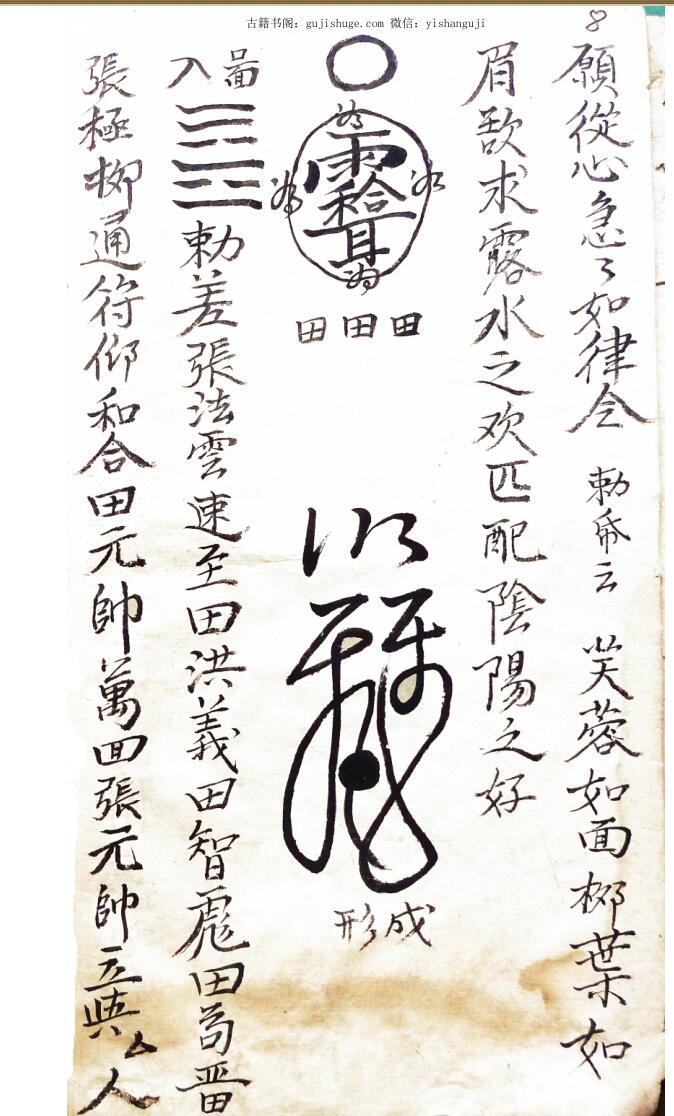 古籍书阁：gujishuge.com 微信：yishanguji
願從心急々如律令 勅帋云 芙蓉如面柳葉如
眉歆求露水之欢匹配陰陽之好
田田田
形成
勅差張法雲速至田洪義田智彪田苟畨
入
張極柳通符仰和合田元帥萬回張元帥立與厶人